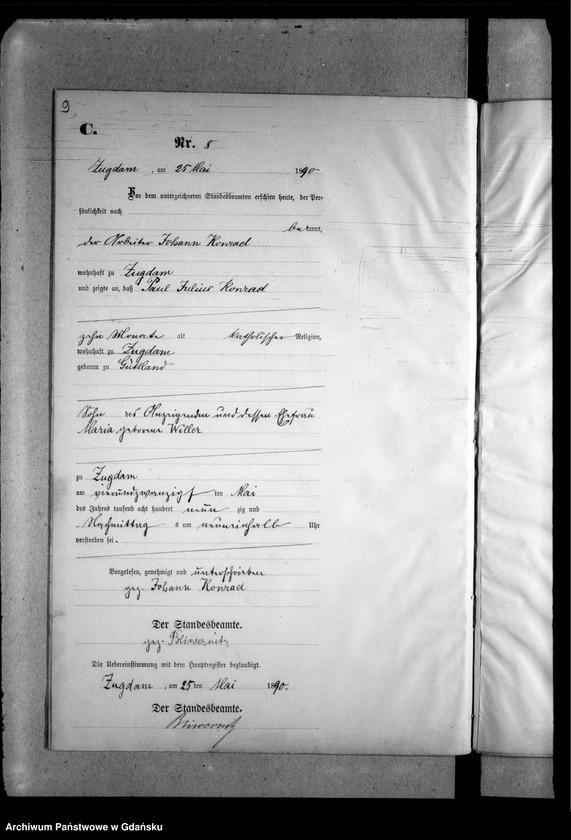 9
C.
Nr. 8
Zugdam, am 25 Mai 1890
Vor dem unterzeichneten Standesbeamten erschien heute, der Per-
sönlichkeit nach
bekannt,
der Arbeiter Johann Konrad
wohnhaft zu Zugdam
und zeigte an, daß Paul Julius Konrad
zehn Monate alt katholischer Religion,
wohnhaft zu Zugdam
geboren zu Güttland
Sohn des Anzeigenden und dessen Ehefrau
Maria geborene Willer
zu Zugdam
am vierundzwanzigsten Mai
des Jahres tausend acht hundert neunzig und
Nachmittags um neuneinhalb Uhr
verstorben sei.
Vorgelesen, genehmigt und unterschrieben
gez. Johann Konrad
Der Standesbeamte.
gez.
Die Uebereinstimmung mit dem Hauptregister beglaubigt.
Zugdam, am 25ten Mai 1890.
Der Standesbeamte.
Archiwum Państwowe w Gdańsku